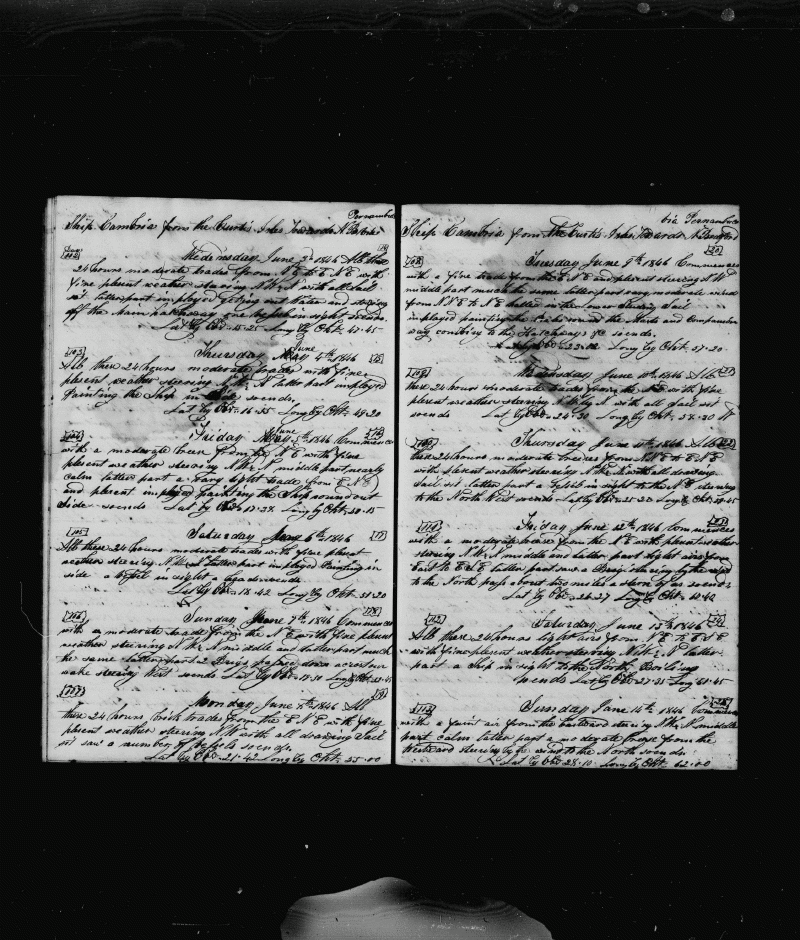 Pernambuco
Ship Cambria from the Curtis Isles Towards N Bedford
102
Wednesday June 3d 1846 All these
24 hours moderate trades from N E to E N E with
fine plesent weather stearing N W N with all sail
set latter part imployed Geting out Water and
off the Main hatchway one by fish in sight soends
Lat by Obs 15-25 Long by Chr. 47-45
103
June
Thursday May 4th 1846 15
All these 24 hours moderate trades with fine
plesent weather stearing N W N latter part imployed
Painting the Ship in side soends
Lat by Obs 16-35 Long by Chr. 48-20
104
June
Friday May 5th 1846 Commences
with a moderate breeze from N E with fine
plesent weather stearing N W N middle part nearly
calm latter part a vary light trade from E N E
and plesent imployed painting the Ship round out
side soends Lat by Obs 17-28 Long by Chr. 50-15
105
Saturday May 6th 1846 17
All these 24 hours moderate trades with fine plesent
weather stearing N W N latter part imployed Painting in
side a Brig in sight a head soends
Lat by Obs 18-42 Long by Chr. 51-20
106
Sunday June 7th 1846 Commences 18
with a moderate trade from the N E with fine plesent
weather stearing N W N middle and latter part much
the same latter part 2 Brigs passed down across our
wake stearing West soends Lat by Obs Long by Chr.
107
Monday June 8th 1846 All 19
these 24 hours brisk trades from the E N E with fine
plesent weather stearing N W with all drawing Sail
set saw a number of vessels soends
Lat by Obs 21-42 Long by Chr. 55-00
bia Pernambuco
Ship Cambria from the Curtis Isles Towards N Bedford
108 20
Tuesday June 9th 1846 Commences
with a fine trade from the E N E and plesent stearing N W
middle part much the same latter part vary moderate wind
from N N E to N E halled in the lower stearing Sail
imployed painting the Ship round the Heads and Companion
way combing to the Hatchways &c soends
Lat by Obs 23-02 Long by Chr. 57-20
109 21
Wednesday June 10th 1846 All
these 24 hours moderate trades from the N E with fine
plesent weather stearing N W by N with all sail set
soends Lat by Obs 24-30 Long by Chr. 58-30 W
110
Thursday June 11th 1846 All
these 24 hours moderate breezes from N E to E N E
with plesent weather stearing N W N with all drawing
Sail set latter part a Ship in sight to the N E stearing
to the North West soends Lat by Obs 25-20 Long by Chr. 59-45
111
Friday June 12th 1846 Commences
with a moderate breeze from the N E with plesent weather
stearing N W N middle and latter part light airs from
East to E S E latter part saw a Brig stearing by the wind
to the North pass about two miles a stern of us soends
Lat by Obs 26-27 Long by Chr. 60-42
112
Saturday June 13th 1846
All these 24 hours light airs from N E to E S E
with fine plesent weather stearing N W N latter
part a Ship in sight to the North
soends Lat by Obs 27-21 Long 61-45
113
Sunday June 14th 1846 Commences
with a faint air from the Eastward stearing N W N middle
part calm latter part a moderate breeze from the
Westward stearing by the wind to the North soends
Lat by Obs 28-10 Long by Chr. 62-00